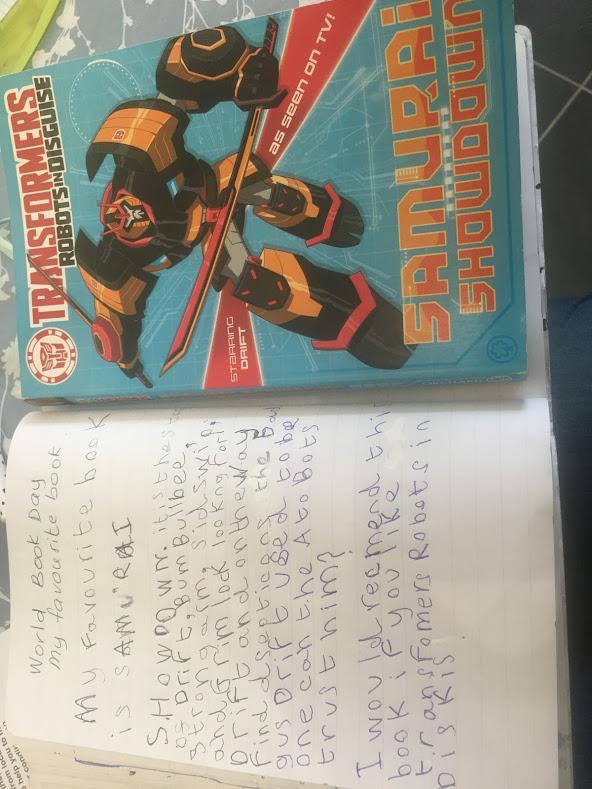 TRANSFORMERS
ROBOTS IN DISGUISE
AS SEEN ON TV!
STARRING
DRIFT
SAMURAI
SHOWDOWN
World Book Day
My favourite book
My Favourite book
is SAMURAI
SHOWDOWN. it is the
of Drift, Bum Bulibee,
strong arm,
and Grimlock looking For
Drift and on the way
Find dsepticons the
gus Drift used to be
one can the AtoBots
trust him?
I would recmend thi
book if you like
transfomers Robots in
Dis Kis